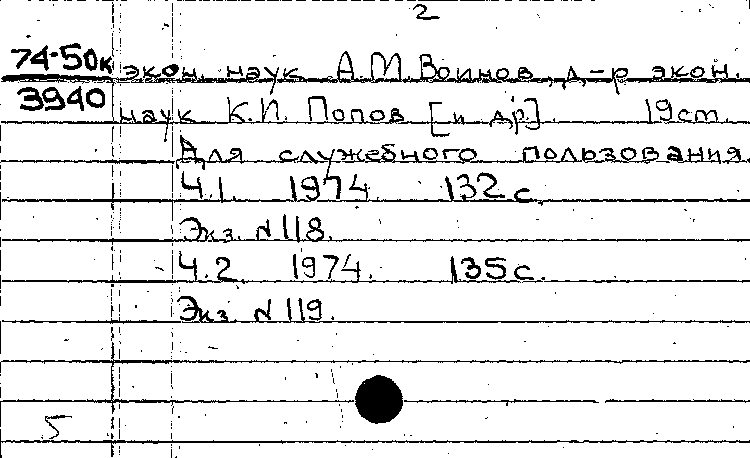 2
74-50к экон. наук А.М. Воинов, д-р экон.
3940 наук К.П. Попов [и др]. 19 cm.
Для служебного пользования.
Ч.1. 1974. 132 с.
Экз. N 118.
Ч.2. 1974. 135 с.
Экз. N 119.
5